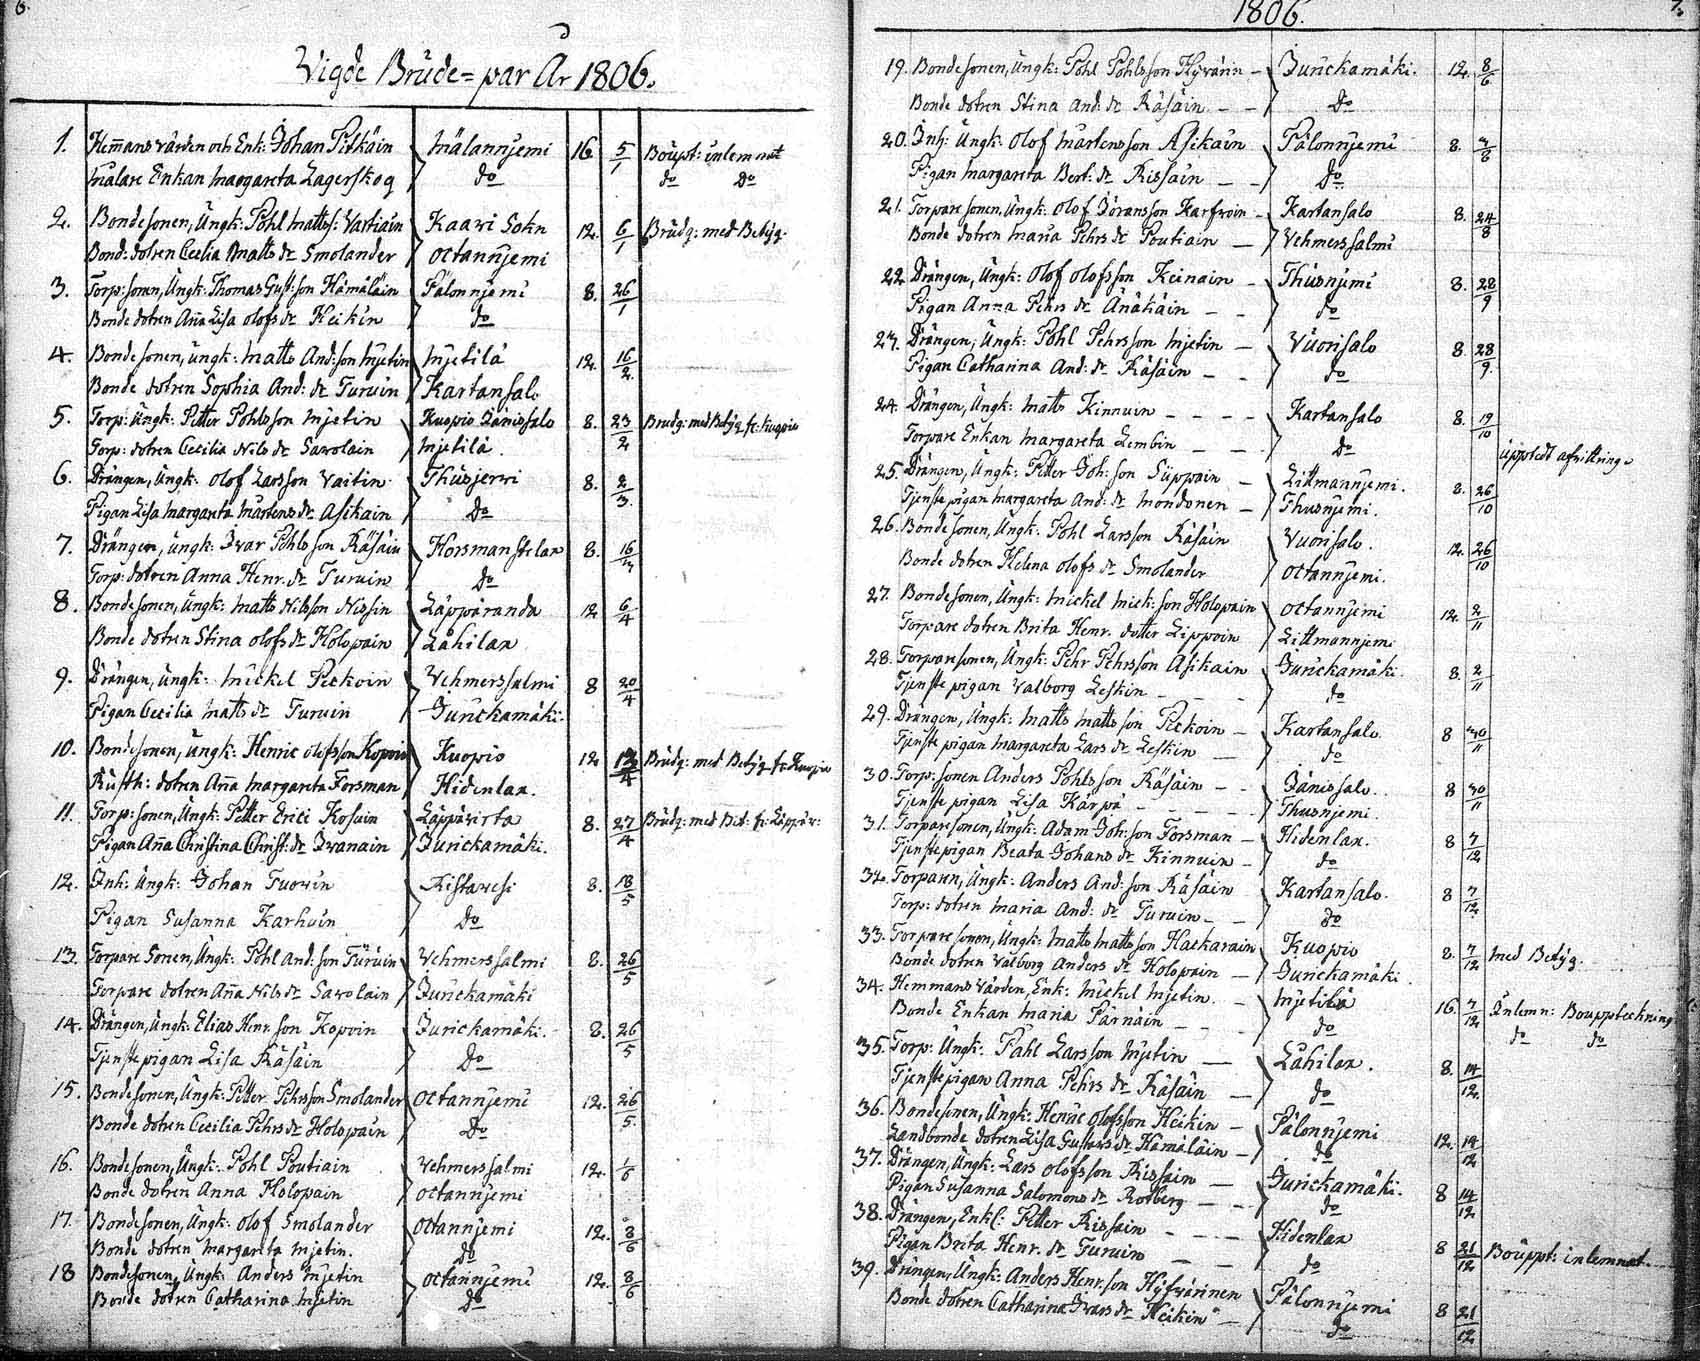 6.
Vigde Brude=par År 1806.
1. Hemansvärden och Enk: Johan Pitkäin Mälannjemi 16 5/1 Boupt: inlemnat
Målare Enkan Margareta Lagerskog do do do
2. Bondesonen, Ungk: Pohl Matts: Vartiain Kaavi Sokn 12. 6/1 Brudg: med Betyg.
Bond: dotren Cecilia Matts dr Smolander Octannjemi
3. Torp: sonen, Ungk: Thomas Gust: son Hämäläin Pälonnjemi 8. 26/1
Bonde dotren Aña Lisa olofs dr Heikin do
4. Bondesonen, ungk: Matts And: son Mjetin Mjetilä 12. 16/2.
Bonde dotren Sophia And: dr Turuin Kartansalo
5. Torp: Ungk: Petter Pohlsson Mjetin Kuopio Jänissalo 8. 23/2 Brudg: med Betyg fr: Kuopio
Torp: dotren Cecilia Nils dr Savolain Mjetilä.
6. Drängen, Ungk: olof Larsson Vaitin Thusjerwi 8. 2/3.
Pigan Lisa Margareta Mårtens dr Asikain do
7. Drängen, ungk: Ivar Pohls son Räsäin Horsmanstelax 8. 16/3
Torp: dotren Anna Henr. dr Turuin do
8. Bondesonen, Ungk: Matts Nilsson Nissin Läppäranda 12 6/4
Bonde dotren Stina olofs dr Holopain Lähilax
9. Drängen, Ungk: Mickel Pekoin Vehmerssalmi 8 20/4
Pigan Cecilia Matts dr Turuin Jurickamäki.
10. Bondesonen, Ungk: Henric olofsson Kopoin Kuopio 12 /4 Brudg: med Betyg fr Kuopio
Rustth: dotren Aña Margareta Forsman Hidenlax.
11. Torp: sonen, Ungk: Petter Erici Kosuin Läppävirta 8. 27/4 Brudg: med Bet: fr: Läppär:
Pigan Aña Christina Christ: dr Ivanain Jurickamäki.
12. Inh: Ungk: Johan Tuovin Ristavesi 8. 18/5
Pigan Susanna Karhuin do
13. Torpare Sonen, Ungk: Pohl And: son Turuin Vehmerssalmi 8. 26/5
Torpare dotren Aña Nils dr Savolain Jurickamäki
14. Drängen, Ungk: Elias Henr. son Kopoin Jurickamäki. 8. 26/5
Tjenste pigan Lisa Räsäin do
15. Bondesonen, Ungk: Petter Pehrsson Smolander Octannjemi 12. 26/5.
Bonde dotren Cecilia Pehrs dr Holopain do
16. Bondesonen, Ungk: Pohl Poutiain Vehmerssalmi 12. 1/6
Bonde dotren Anna Holopain octannjemi
17. Bondesonen, Ungk: Olof Smolander Octannjemi 12. 8/6
Bonde dotren Margareta Mjetin. do
18 Bondesonen, Ungk: Anders Mjetin octannjemi 12. 8/6
Bonde dotren Catharina Mjetin do
1806. 7.
19. Bondesonen, Ungk: Pohl Pohlsson Hyvärin Jurickamäki. 12. 8/6
Bonde dotren Stina And: dr Räsäin do
20. Inh: Ungk: Olof Mårtensson Asikain Pälonnjemi 8. /8
Pigan Margareta Bert: dr Rissain do
21. Torpare sonen, Ungk: Olof Göransson Karfvoin Kartansalo 8. 24/8
Bonde dotren Maria Pehrs dr Poutiain Vehmerssalmi
22 Drängen, Ungk: Olof olofsson Keinain Thusnjemi 8. 28/9
Pigan Anna Pehrs dr Änäkäin do
23. Drängen, Ungk: Pohl Pehrsson Mjetin Vuorisalo 8. 28/9.
Pigan Catharina And: dr Räsäin do
24. Drängen, Ungk: Matts Kinnuin Kartansalo 8. 19/10
Torpare Enkan Margareta Lembin do uppstedt afvittring
25. Drängen, Ungk: Petter Joh: son Suppain Littmannjemi. 8. 26/10
Tjenste pigan Margareta And: dr Mondonen Thusnjemi.
26. Bondesonen, Ungk: Pohl Larsson Räsäin Vuorisalo. 12. 26/10
Bonde dotren Helena olofs dr Smolander octannjemi.
27. Bondesonen, Ungk: Mickel Mick: son Holopain octannjemi 12. 2/11
Torpare dotren Brita Henr. dotter Lippoin Littmannjemi
28. Torparesonen, Ungk: Pehr Pehrsson Asikain Jurickamäki. 8. 2/11
Tjenste pigan Valborg Leskin do
29. Drängen, Ungk: Matts Mattsson Pekoin Kartansalo. 8 30/11
Tjenste pigan Margareta Lars dr Leskin do
30. Torp: sonen Anders Pohlsson Räsäin Jänissalo. 8 30/11
Tjenste pigan Lisa Kärpä Thusnjemi.
31. Torparesonen, Ungk: Adam Joh: son Forsman Hidenlax. 8 7/12
Tjenstepigan Beata Johans dr Kinnuin do
32. Torparen, Ungk: Anders And: son Räsäin Kartansalo. 8 7/12
Torp: dotren Maria And: dr Turuin do
33. Torpare sonen, Ungk: Matts Mattsson Hackarain Kuopio 8. 7/12 med Betyg.
Bonde dotren Valborg Anders dr Holopain Jurickamäki.
34. Hemmansvärden, Enk: Mickel Mjetin Mjetilä 16. 7/12 Inlemn: Bouppteckning
Bonde Enkan Maria Pärnäin do do do
35. Torp: Ungk: Pahl Larsson Mjetin Lähilax. 8. 14/12.
Tjenstepigan Anna Pehrs dr Räsäin do
36. Bondesonen, Ungk: Henric Olofsson Heikin Pälonnjemi 12. 14/12
Landbonde dotren Lisa Gustavs dr Hämäläin do
37. Drängen, Ungk: Lars olofsson Rissain Jurickamäki. 8 14/12
Pigan Susanna Salomons dr Rotberg do
38. Drängen, Enkl: Petter Rissain Hidenlax 8 21/12 Bouppt: inlemnat.
Pigan Brita Henr. dr Turuin do
39. Drängen, Ungk: Anders Henr. son Hyfvärinen Pälonnjemi 8 21/12
Bonde dotren Catharina Ivars dr Heikin do